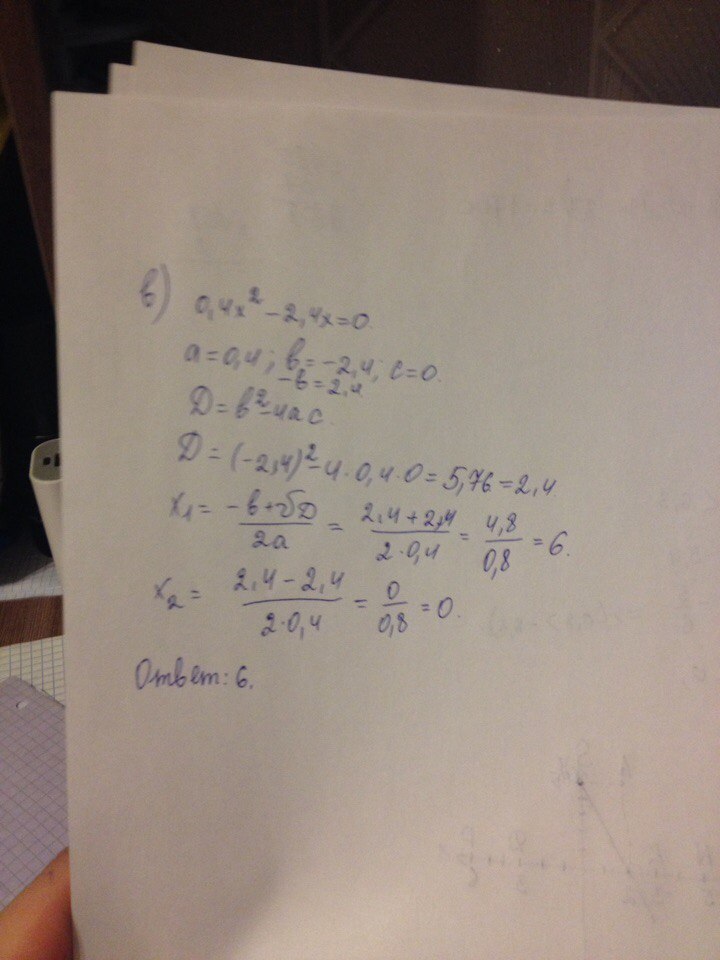 в) 0,4x² - 2,4x=0.
a=0,4; в=-2,4; c=0.
-в=2,4
D=в²-4ac.
D=(-2,4)²-4·0,4·0=5,76=2,4.
x₁= (-в+√D)/(2a) = (2,4+2,4)/(2·0,4) = 4,8/0,8 =6.
x₂= (2,4-2,4)/(2·0,4) = 0/0,8 =0.
Ответ: 6.